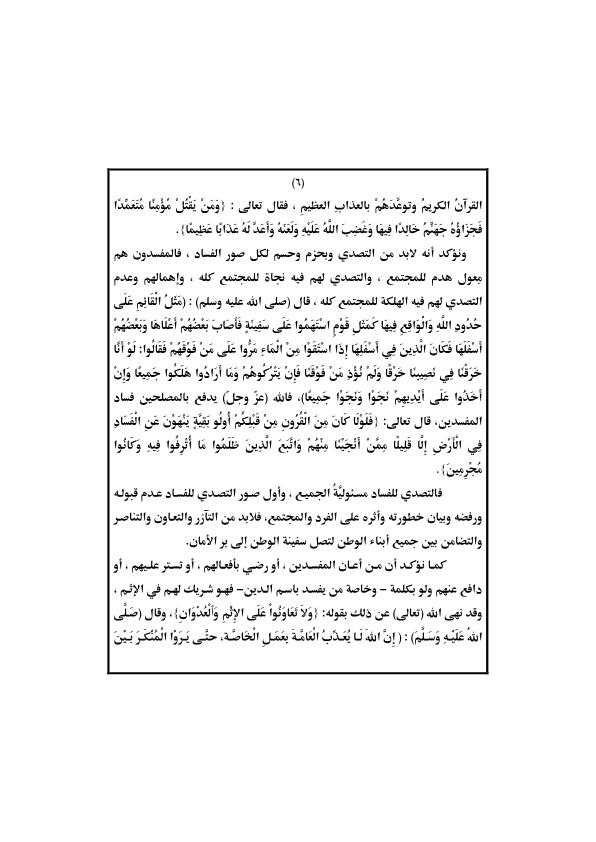 (٦)
القرآنُ الكريمُ وتوعَّدَهُمْ بالعذابِ العظيمِ ، فقال تعالى : {وَمَنْ يَقْتُلْ مُؤْمِنًا مُتَعَمِّدًا
فَجَزَاؤُهُ جَهَنَّمُ خَالِدًا فِيهَا وَغَضِبَ اللَّهُ عَلَيْهِ وَلَعَنَهُ وَأَعَدَّ لَهُ عَذَابًا عَظِيمًا}.
ونؤكد أنه لابد من التصدي وبحزم وحسم لكل صور الفساد ، فالمفسدون هم
مِعول هدم للمجتمع ، والتصدي لهم فيه نجاة للمجتمع كله ، وإهمالهم وعدم
التصدي لهم فيه الهلكة للمجتمع كله ، قال (صلى الله عليه وسلم) : (مَثَلُ الْقَائِمِ عَلَى
حُدُودِ اللَّهِ وَالْوَاقِعِ فِيهَا كَمَثَلِ قَوْمٍ اسْتَهَمُوا عَلَى سَفِينَةٍ فَأَصَابَ بَعْضُهُمْ أَعْلَاهَا وَبَعْضُهُمْ
أَسْفَلَهَا فَكَانَ الَّذِينَ فِي أَسْفَلِهَا إِذَا اسْتَقَوْا مِنْ الْمَاءِ مَرُّوا عَلَى مَنْ فَوْقَهُمْ فَقَالُوا: لَوْ أَنَّا
خَرَقْنَا فِي نَصِيبِنَا خَرْقًا وَلَمْ نُؤْذِ مَنْ فَوْقَنَا فَإِنْ يَتْرُكُوهُمْ وَمَا أَرَادُوا هَلَكُوا جَمِيعًا وَإِنْ
أَخَذُوا عَلَى أَيْدِيهِمْ نَجَوْا وَنَجَوْا جَمِيعًا)، فالله (عزّ وجلّ) يدفع بالمصلحين فساد
المفسدين، قال تعالى: {فَلَوْلَا كَانَ مِنَ الْقُرُونِ مِنْ قَبْلِكُمْ أُولُو بَقِيَّةٍ يَنْهَوْنَ عَنِ الْفَسَادِ
فِي الْأَرْضِ إِلَّا قَلِيلًا مِمَّنْ أَنْجَيْنَا مِنْهُمْ وَاتَّبَعَ الَّذِينَ ظَلَمُوا مَا أُتْرِفُوا فِيهِ وَكَانُوا
مُجْرِمِينَ}.
فالتصدي للفساد مسئوليَّةُ الجميع ، وأول صور التصدي للفساد عدم قبوله
ورفضه وبيان خطورته وأثره على الفرد والمجتمع، فلابد من التآزر والتعاون والتناصر
والتضامن بين جميع أبناء الوطن لتصل سفينة الوطن إلى بر الأمان.
كما نؤكد أن من أعان المفسدين ، أو رضي بأفعالهم ، أو تستر عليهم ، أو
دافع عنهم ولو بكلمة – وخاصة من يفسد باسم الدين– فهو شريك لهم في الإثم ،
وقد نهى الله (تعالى) عن ذلك بقوله: {وَلاَ تَعَاوَنُواْ عَلَى الإِثْمِ وَالْعُدْوَانِ}، وقال (صَلَّى
اللهُ عَلَيْهِ وَسَلَّمَ) : ( إِنَّ اللهَ لَا يُعَذِّبُ الْعَامَّةَ بِعَمَلِ الْخَاصَّةِ، حتَّى يَرَوُا الْمُنْكَرَ بَيْنَ